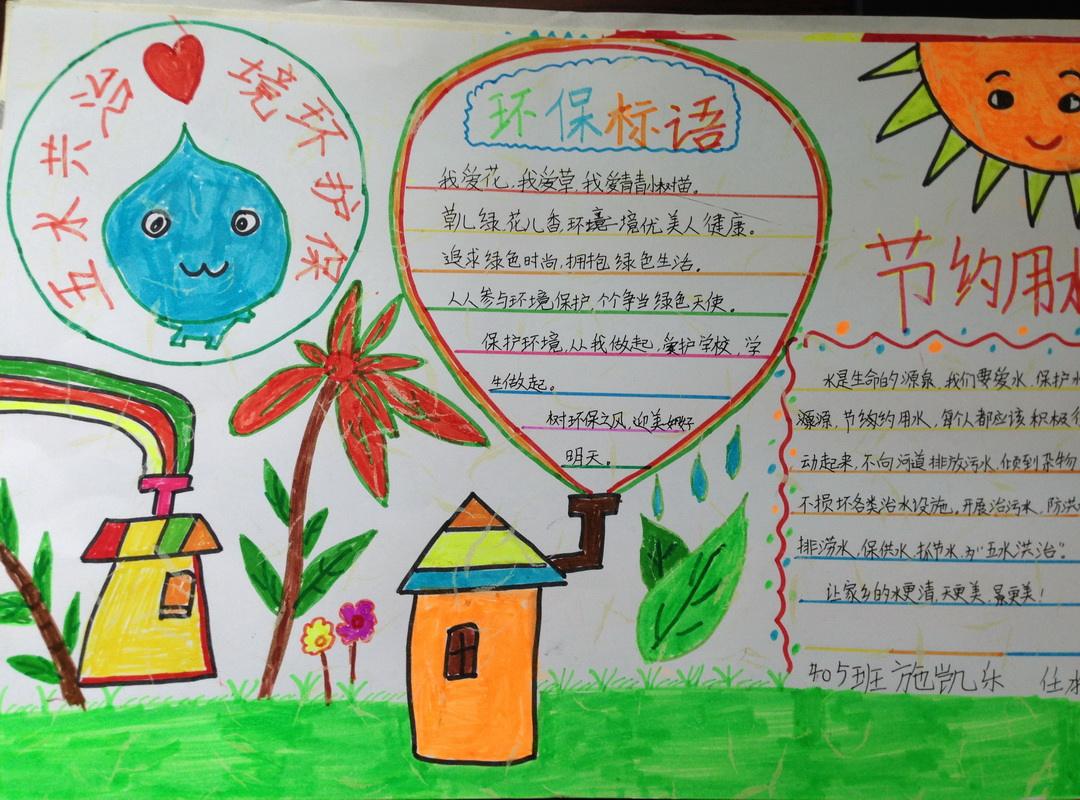 五水共治
境环护保
环保标语
我爱花,我爱草,我爱青青小树苗。
草儿绿,花儿香,环境境优美人健康。
追求绿色时尚,拥抱绿色生活。
人人参与环境保护,个个争当绿色天使。
保护环境,从我做起,爱护学校,学
生做起。
树环保之风,迎美好
明天。
节约用水
水是生命的源泉,我们要爱水,保护水
源,节约用水,每个人都应该积极行
动起来,不向河道排放污水,倾到杂物
不损坏各类治水设施。开展治污水,防洪
排涝水,保供水,抓节水,为"五水洪治"。
让家乡的水更清,天更美,景更美!
405班 施凯乐